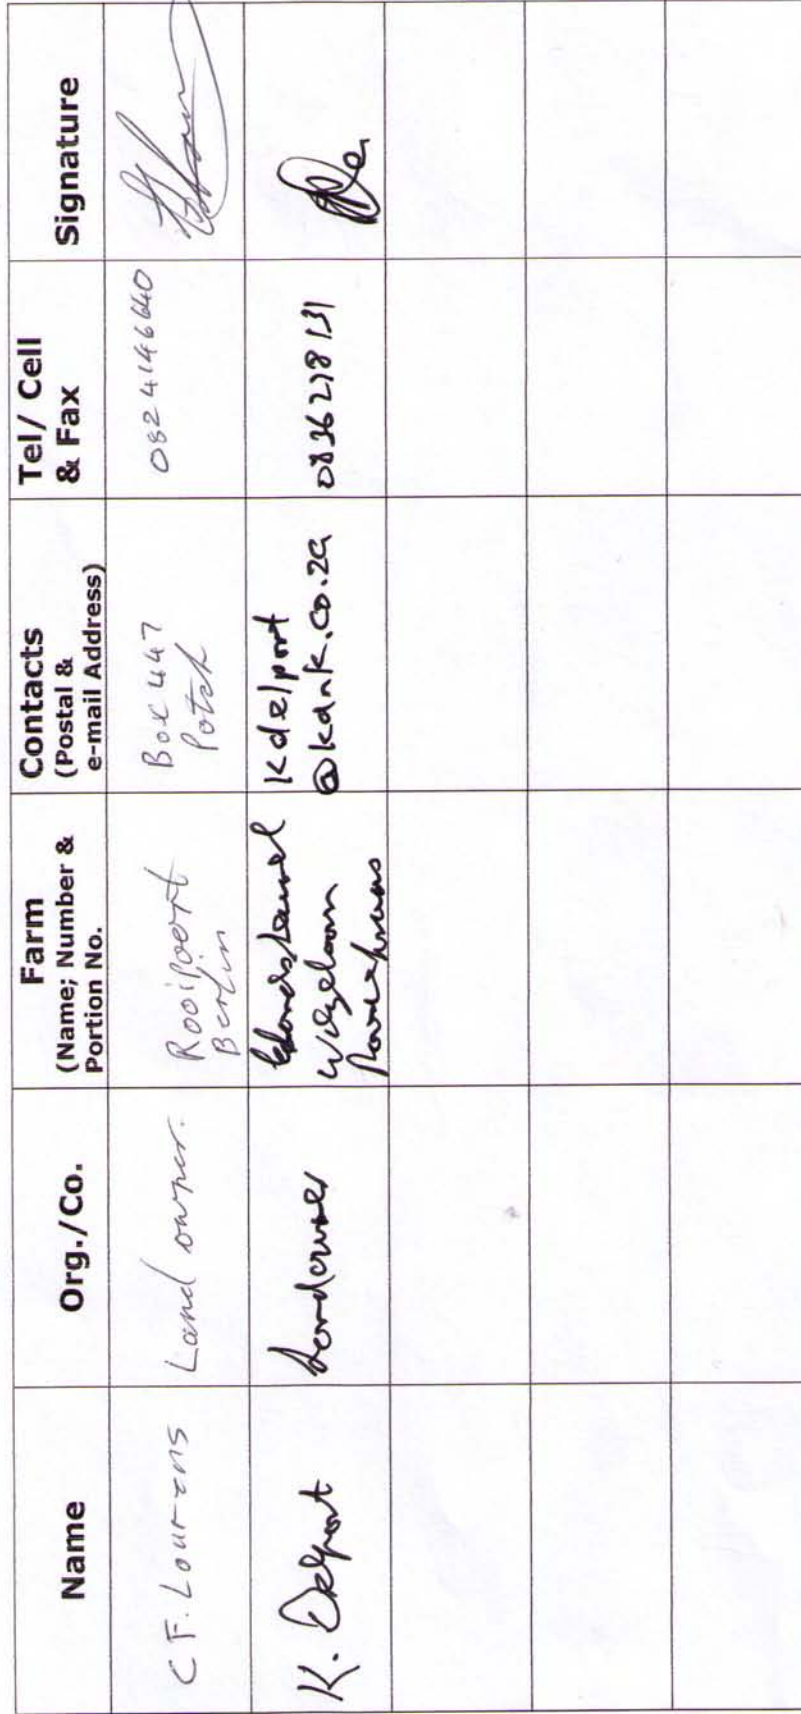 Name
Org./Co.
Farm
(Name; Number &
Portion No.
Contacts
(Postal &
e-mail Address)
Tel/ Cell
& Fax
Signature
C F. Lourens
Land owner.
Rooipoort
Berlin
Box 447
Potch
082 4146640
K. Delport
Landowner
kdelport
@kdnk.co.za
0836278131